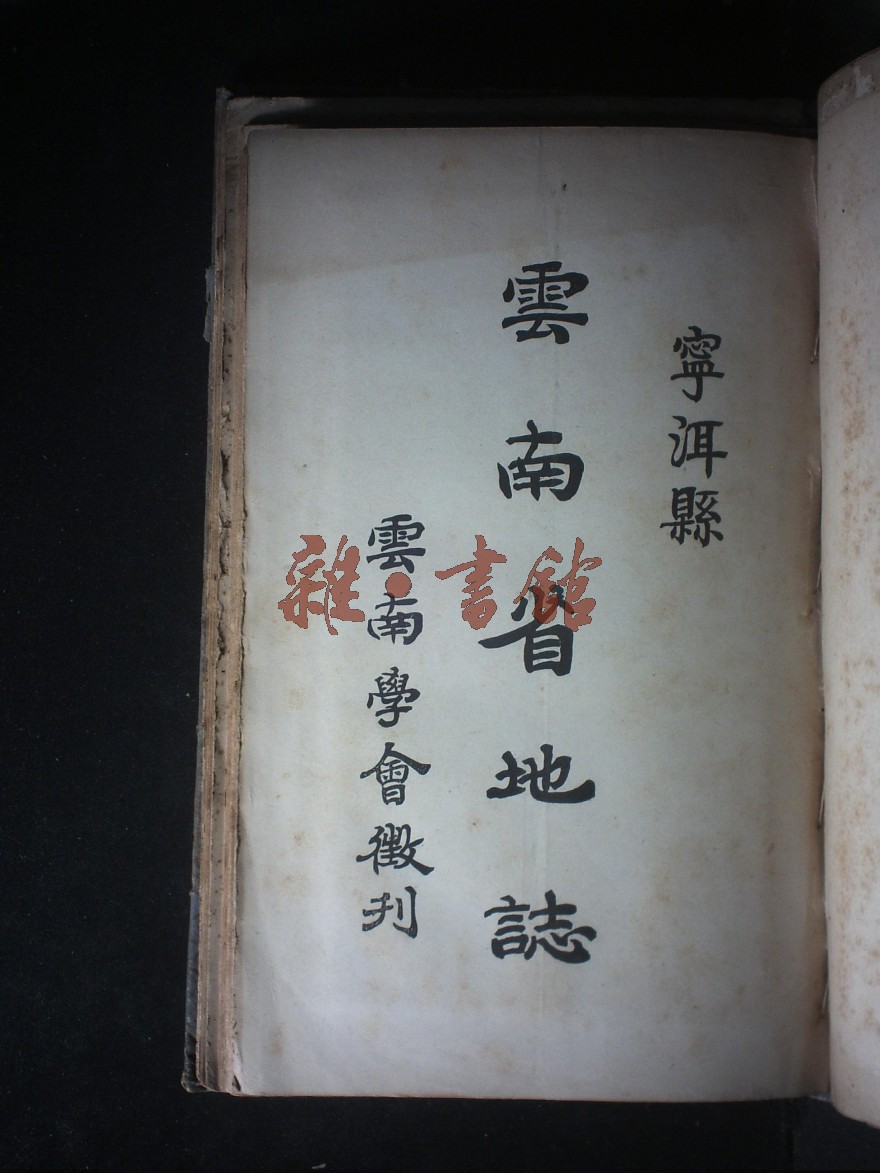 寧洱縣
雲南省地誌
雲南學會徵刋
雜·書館